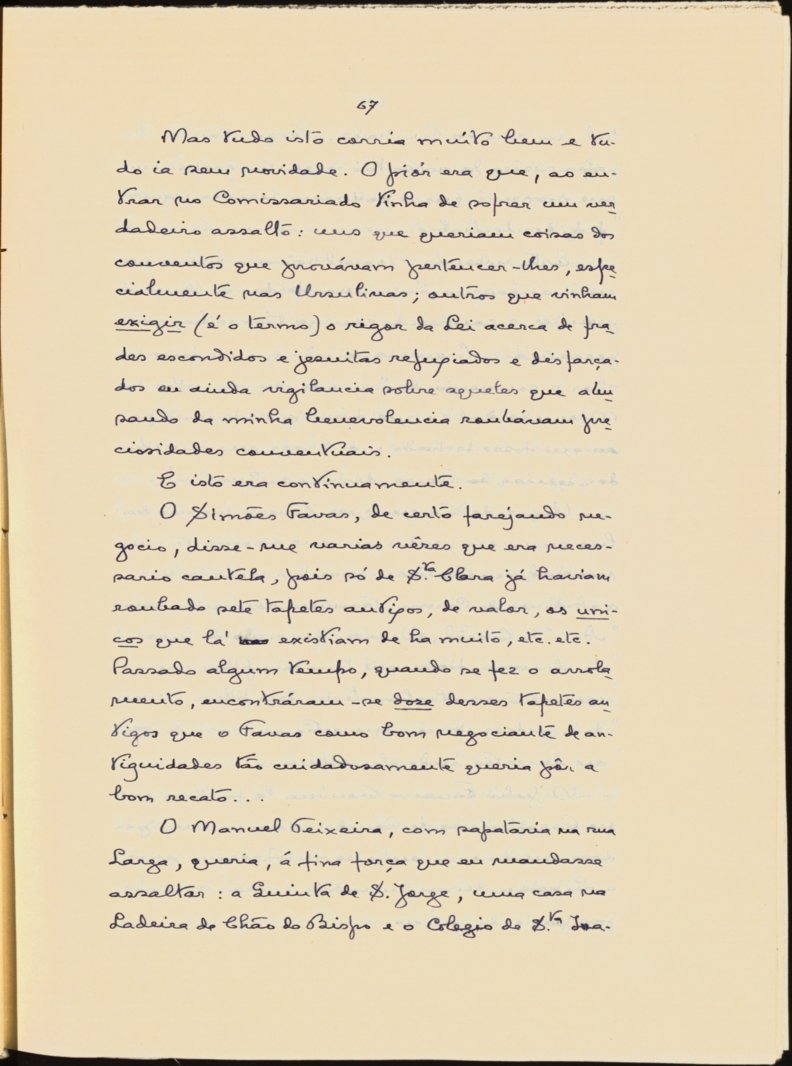 67
Mas tudo isto corria muito bem e tu-
do ia sem novidade. O piór era que, ao en-
trar no Comissariado tinha de sofrer um ver
dadeiro assalto: uns que queriam coisas dos
conventos que provávam pertencer-lhes, espe
cialmente nas Ursulinas; outros que vinham
exigir (é o termo) o rigor da Lei acerca de fra
des escondidos e jesuitas refugiados e disfarça-
dos ou ainda vigilancia sobre aqueles que abu
sando da minha benevolencia roubávam pre
ciosidades conventuais.
E isto era continuamente.
O Simões Favas, de certo farejando ne-
gocio, disse-me varias vêzes que era neces-
sario cautela, pois só de S.ta Clara já haviam
roubado sete tapetes antigos, de valor, os uni-
cos que lá existiam de ha muito, etc. etc.
Passado algum tempo, quando se fez o arrola
mento, encontráram-se doze desses tapetes an
tigos que o Favas como bom negociante de an-
tiguidades tão cuidadosamente queria pôr a
bom recato...
O Manuel Teixeira, com sapataria na rua
Larga, queria, á fina força que eu mandasse
assaltar: a Quinta de S. Jorge, uma casa na
Ladeira de Chão do Bispo e o Colegio de S.ta Joa-